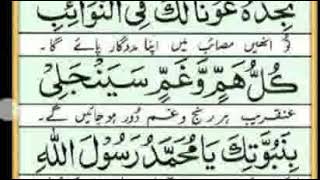 تَجِدْهُ عَوْنًا لَّكَ فِی النَّوَائِبِ
تو انھیں مصائب میں اپنا مددگار پائے گا۔
كُلُّ هَمٍّ وَّغَمٍّ سَيَنْجَلِیْ
عنقریب ہر رنج و غم دُور ہو جائیں گے۔
بِنُبُوَّتِكَ يَا مُحَمَّدُ رَسُوْلَ اللهِ